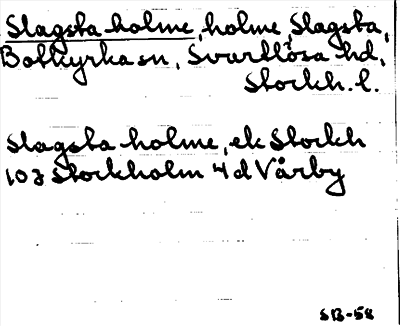 Slagsta holme, holme, Slagsta,
Botkyrka sn, Svartlösa hd,
Stockh. l.
Slagsta holme, ek Stockh
103 Stockholm 4d Vårby
SB-58